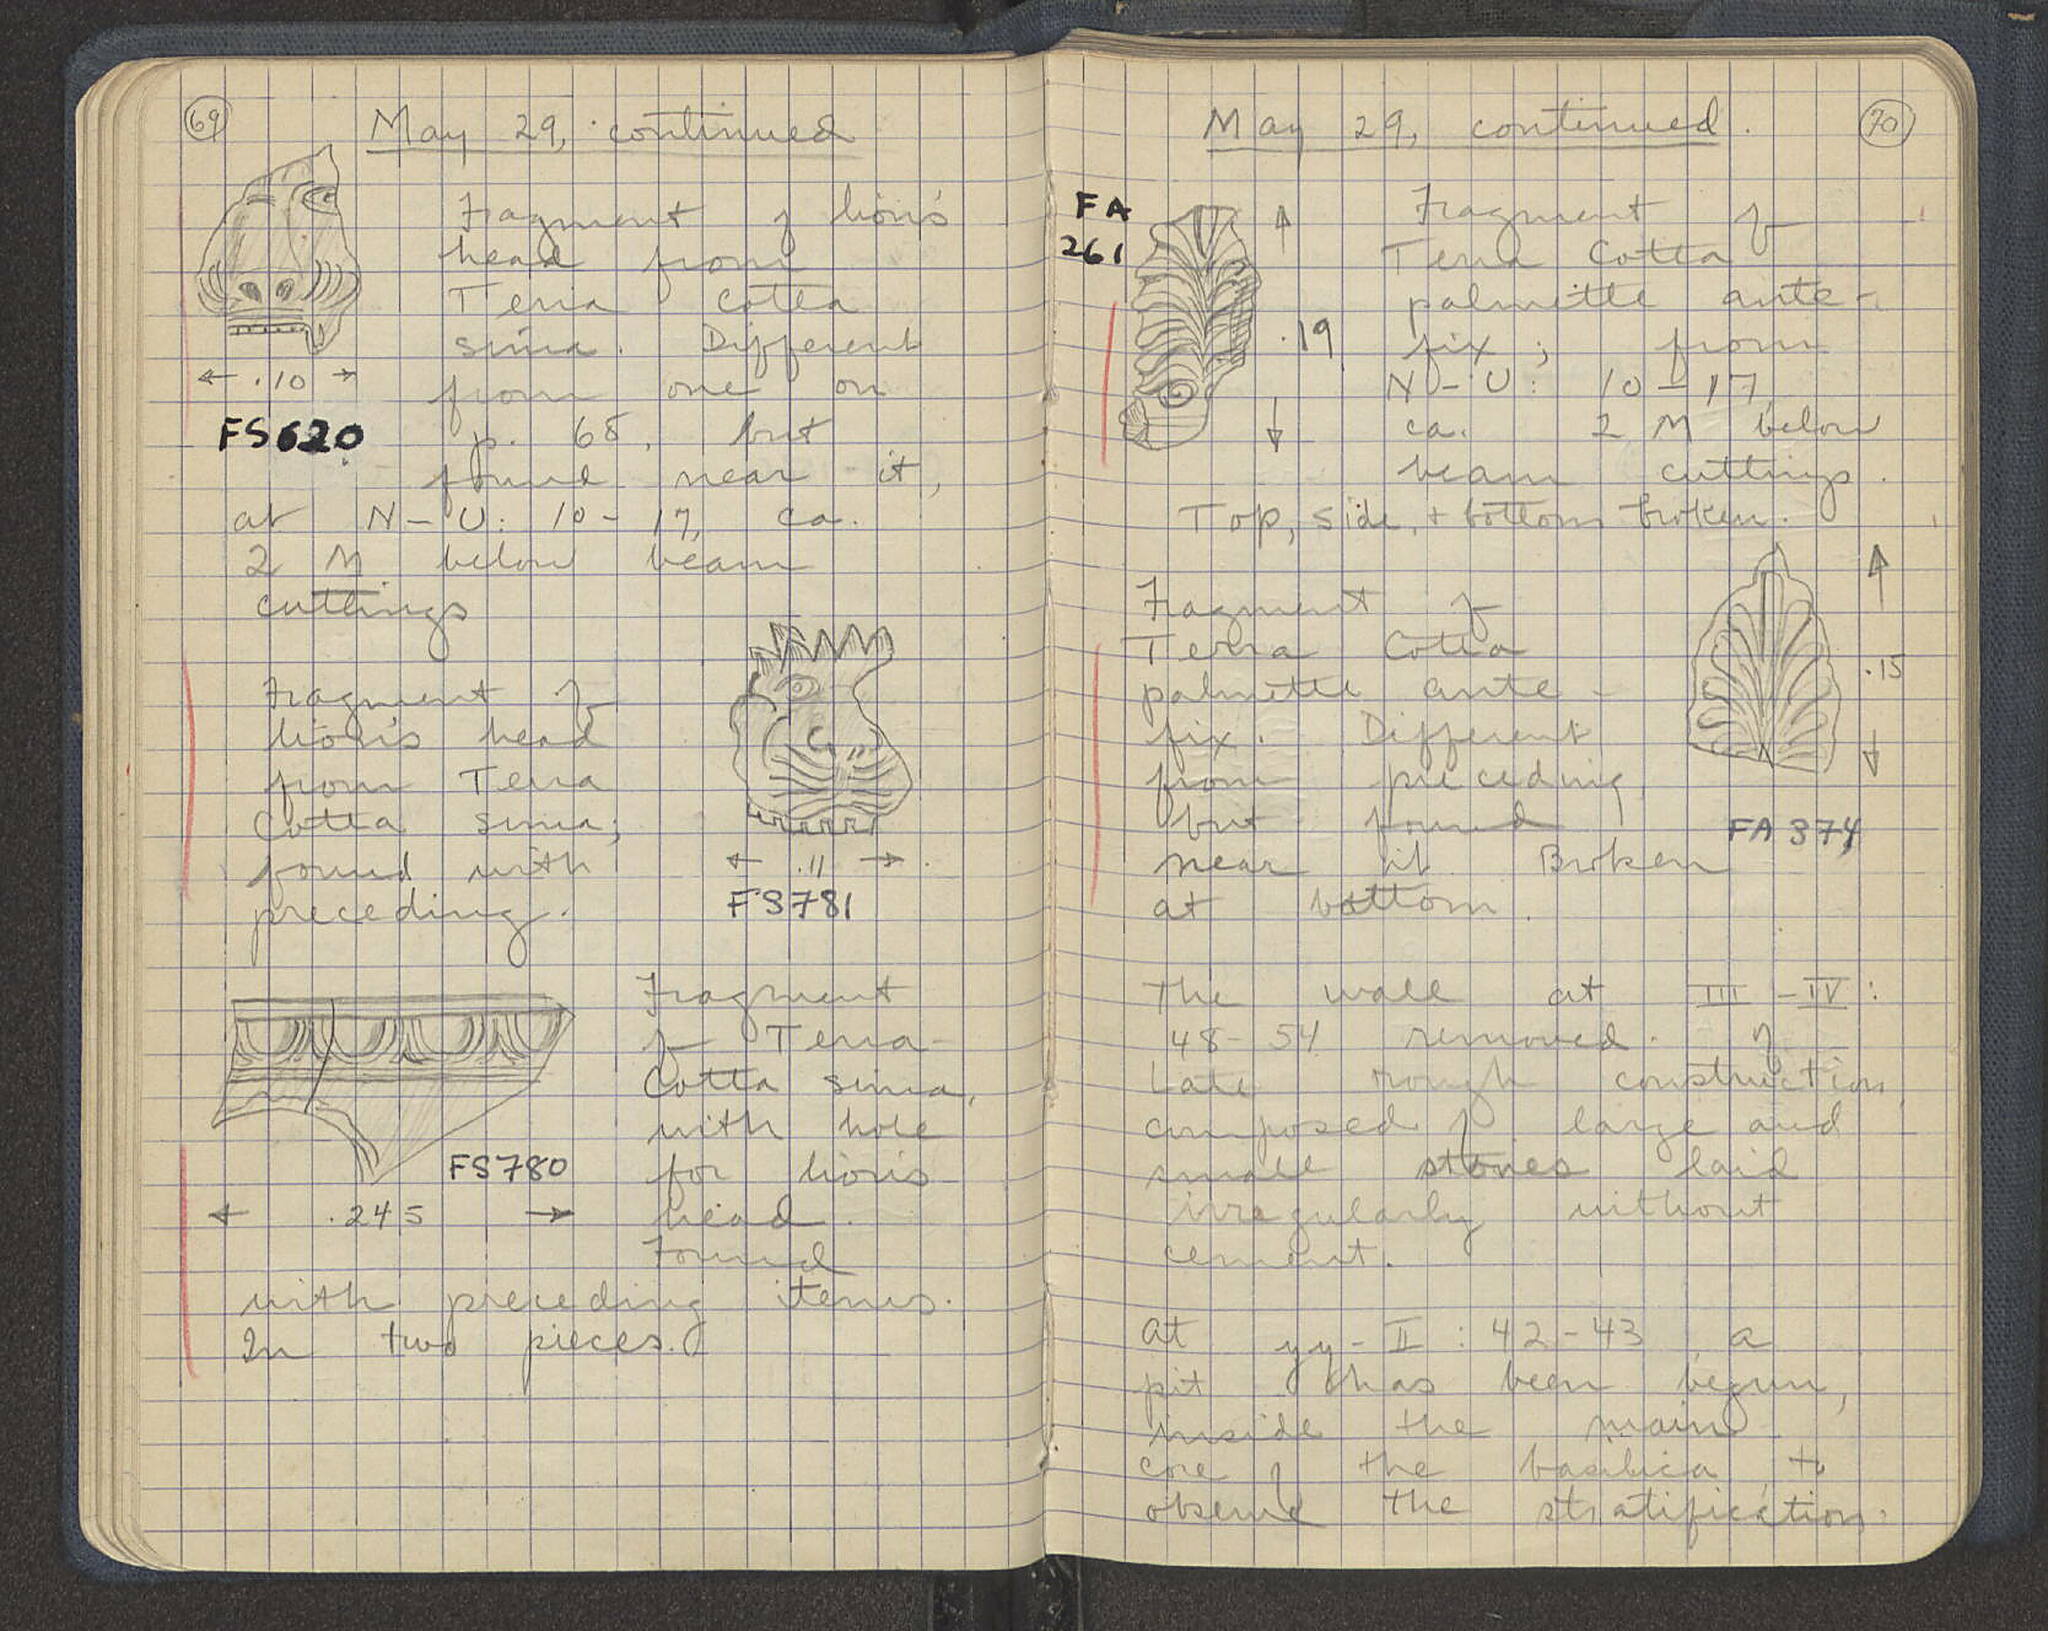 69
May 29, continued
Fragment of lion's
head from
Terra cotta
sima. Different
← .10 →
from one on
FS620
p. 68, but
found near it,
at N-U: 10-17, ca.
2 M below beam
cuttings
Fragment of
lion's head
from Terra
Cotta sima;
found with
preceding.
← .11 →
FS781
Fragment
of Terra-
Cotta sima,
with hole
for lion's
head.
FS780
← .245 →
Found
with preceding items.
In two pieces.
May 29, continued.
70
FA
261
Fragment of
Terra Cotta
palmette ante-
.19
fix; from
N-U: 10-17,
ca. 2 M below
beam cuttings.
Top, side, + bottom broken.
Fragment of
Terra Cotta
palmette ante-
fix. Different
from preceding,
but found
near it. Broken
at bottom.
.15
FA 374
The wall at III-IV:
48-54 removed. Of
late rough construction,
composed of large and
small stones laid
irregularly without
cement.
At yy-II: 42-43 a
pit has been begun,
inside the main
core of the basilica to
observe the stratification.